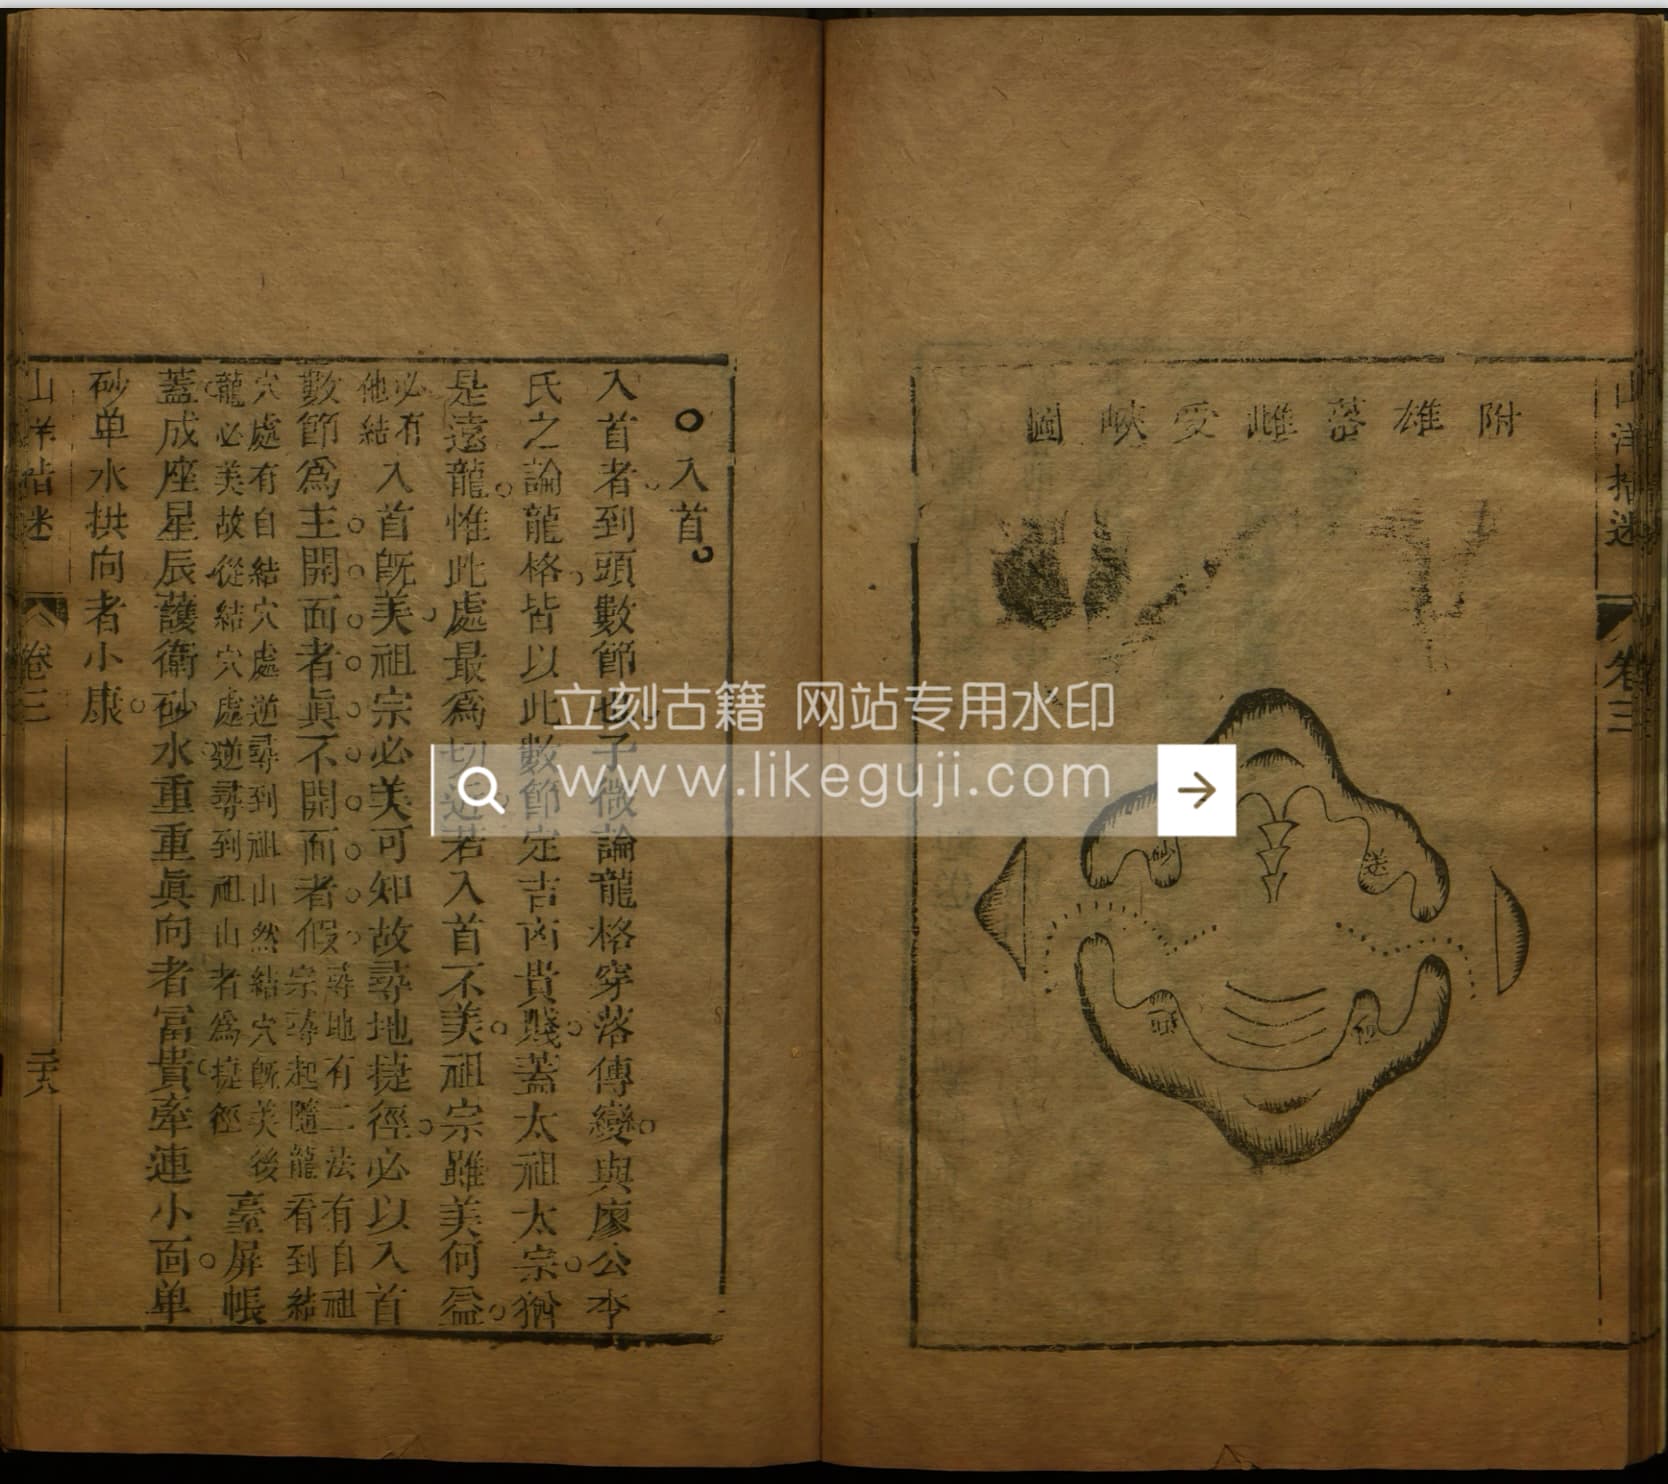 附雄落雌受峽圖
砂
送
砂
山洋指迷 卷三
入首
入首者到頭數節也子微論龍格穿落傳變與廖公李
氏之論龍格皆以此數節定吉凶貴賤蓋太祖太宗猶
是遠龍惟此處最爲切近若入首不美祖宗雖美何益
必有
他結
入首既美祖宗必美可知故尋地捷徑必以入首
數節爲主開面者眞不開面者假
尋地有二法有自祖
宗尋起隨龍看到結
穴處有自結穴處逆尋到祖山然結穴既美後
龍必美故從結穴處逆尋到祖山者爲捷徑
臺屏帳
蓋成座星辰護衛砂水重重眞向者富貴牽連小面单
砂单水拱向者小康
山洋指迷 卷三
立刻古籍 网站专用水印
www.likeguji.com